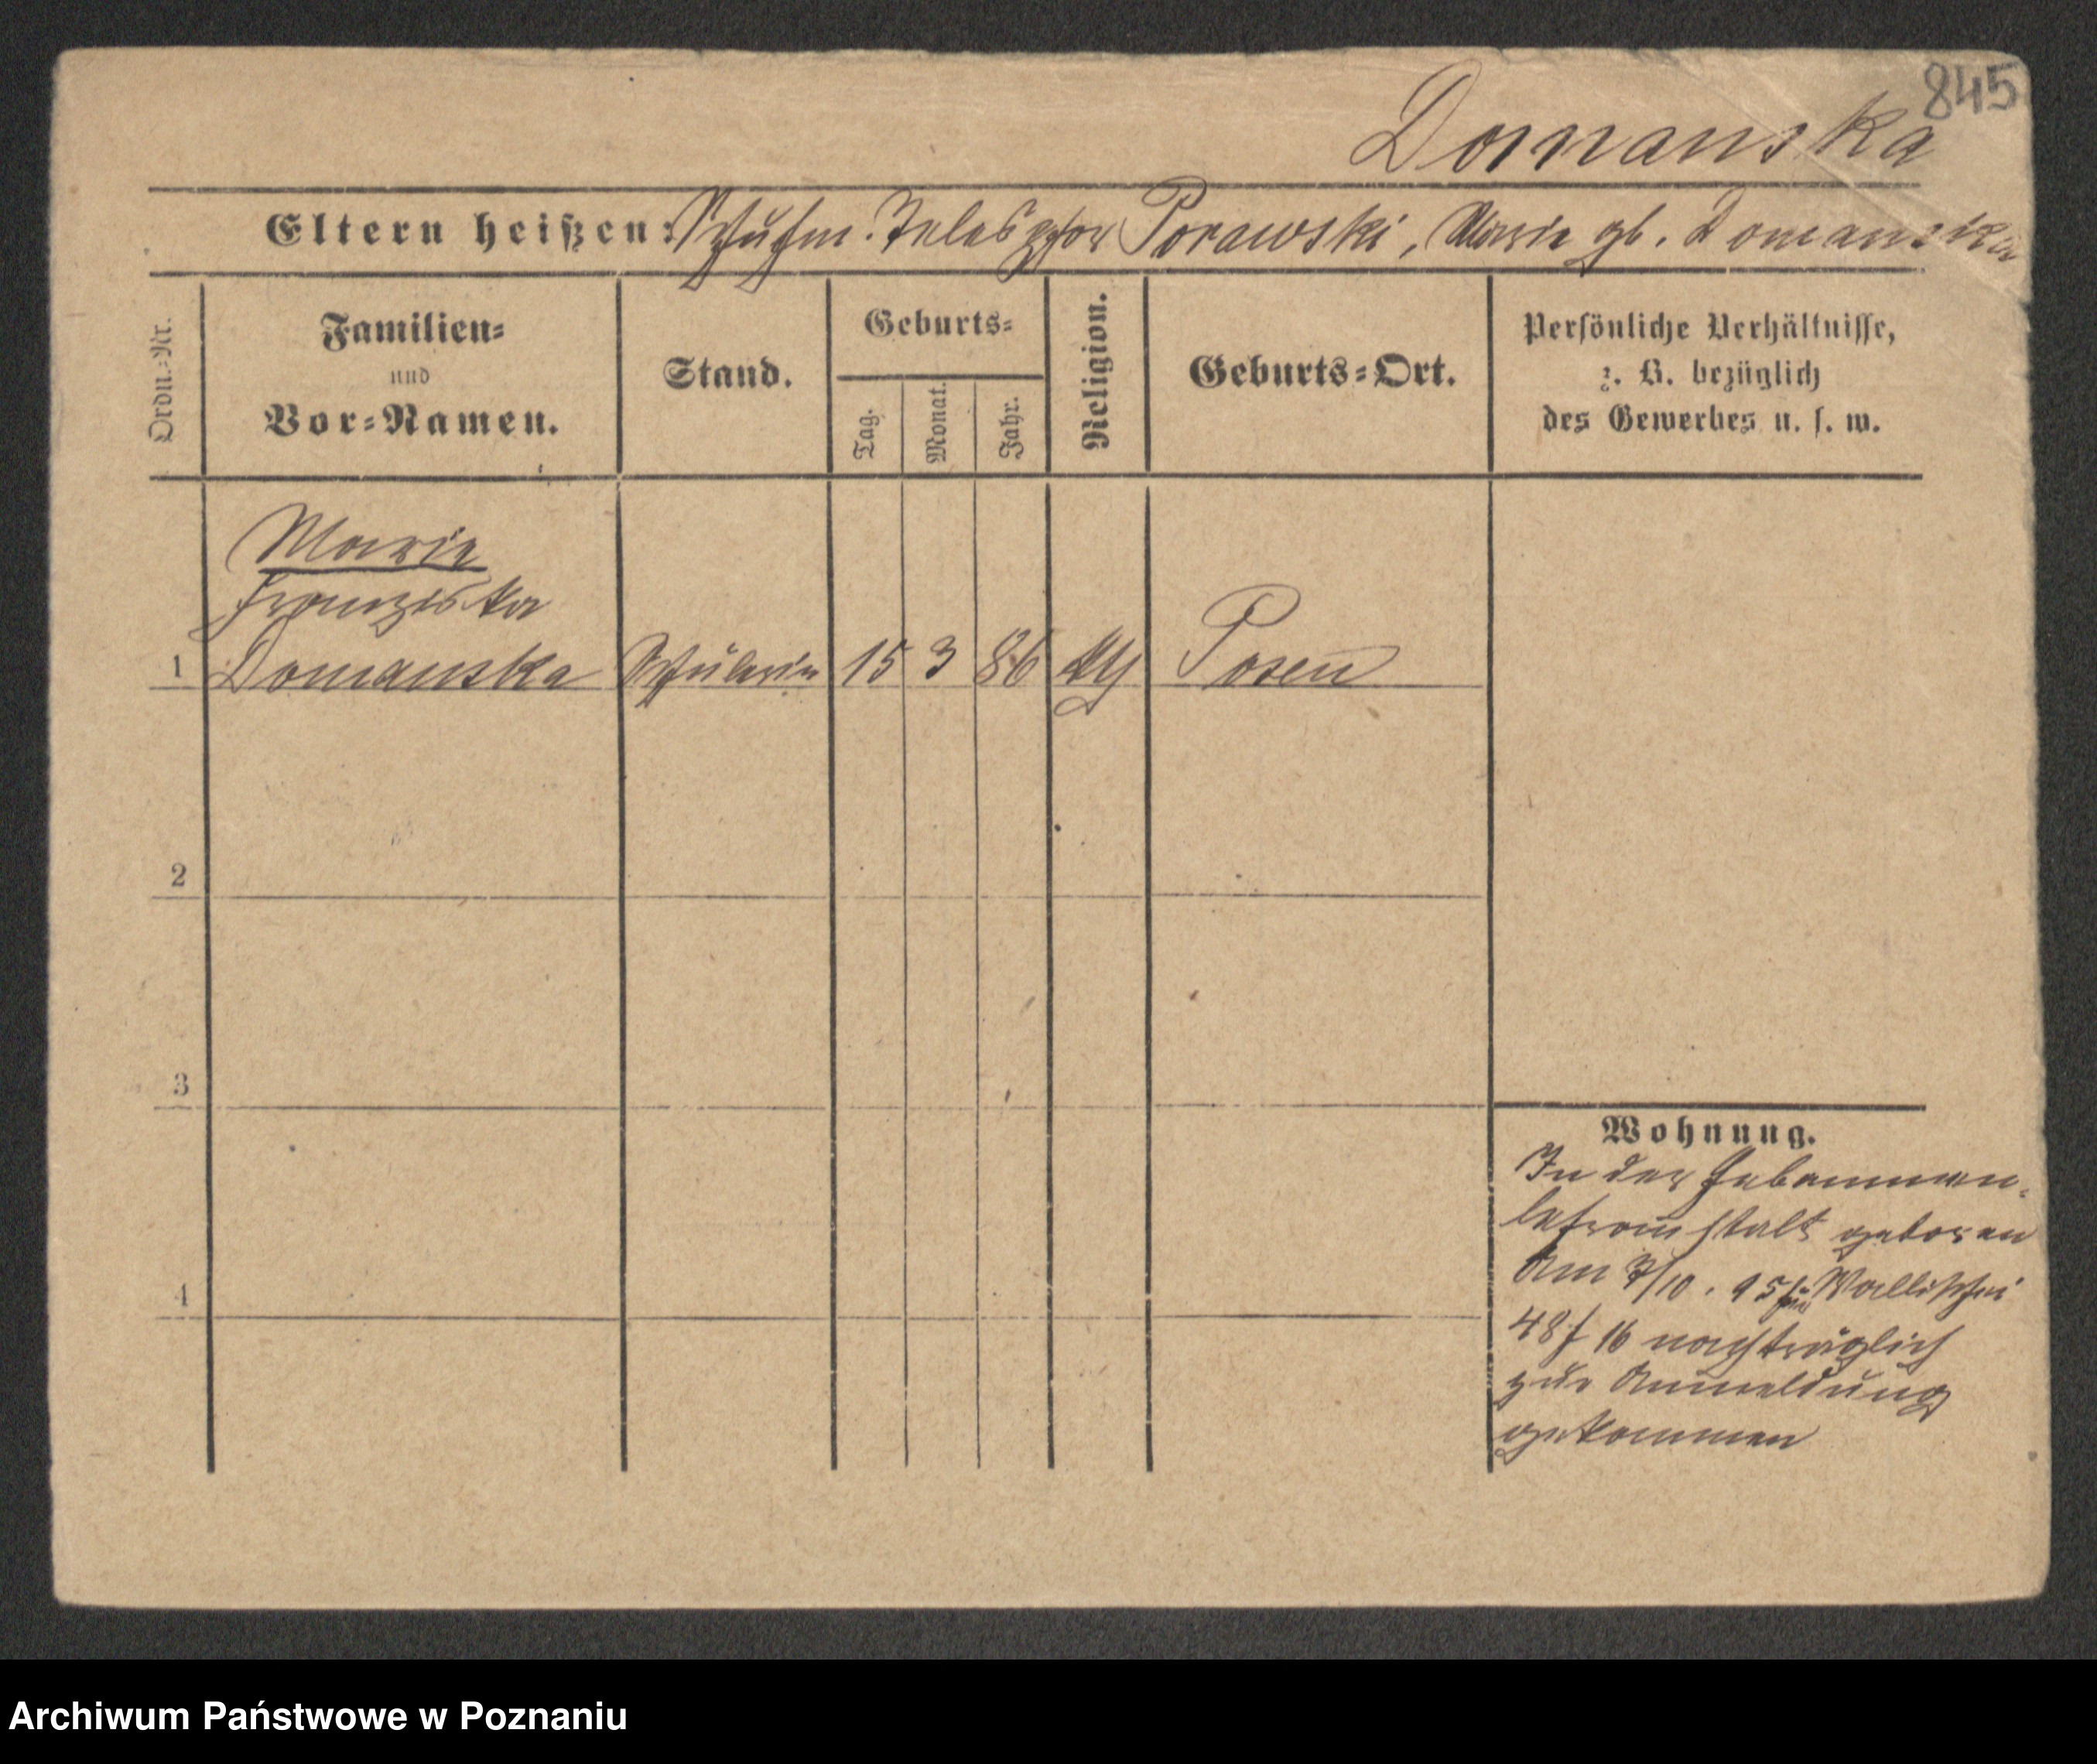 845
Domanska
Eltern heißen: Schuhm. Telesphor Porawski, Marie gb. Domanska
Ordn.=Nr.
Familien=
und
Vor=Namen.
Stand.
Geburts=
Tag.
Monat.
Jahr.
Religion.
Geburts=Ort.
Persönliche Verhältnisse,
z. B. bezüglich
des Gewerbes u. s. w.
Marie
Franziska
1 Domanska Schülerin 15 3 86 Posen
2
3
Wohnung.
In der Hebammen-
lehranstalt geboren
Am 7/10. 95 für Wallischei
48 f 16 nachträglich
zur Anmeldung
gekommen
4
Archiwum Państwowe w Poznaniu